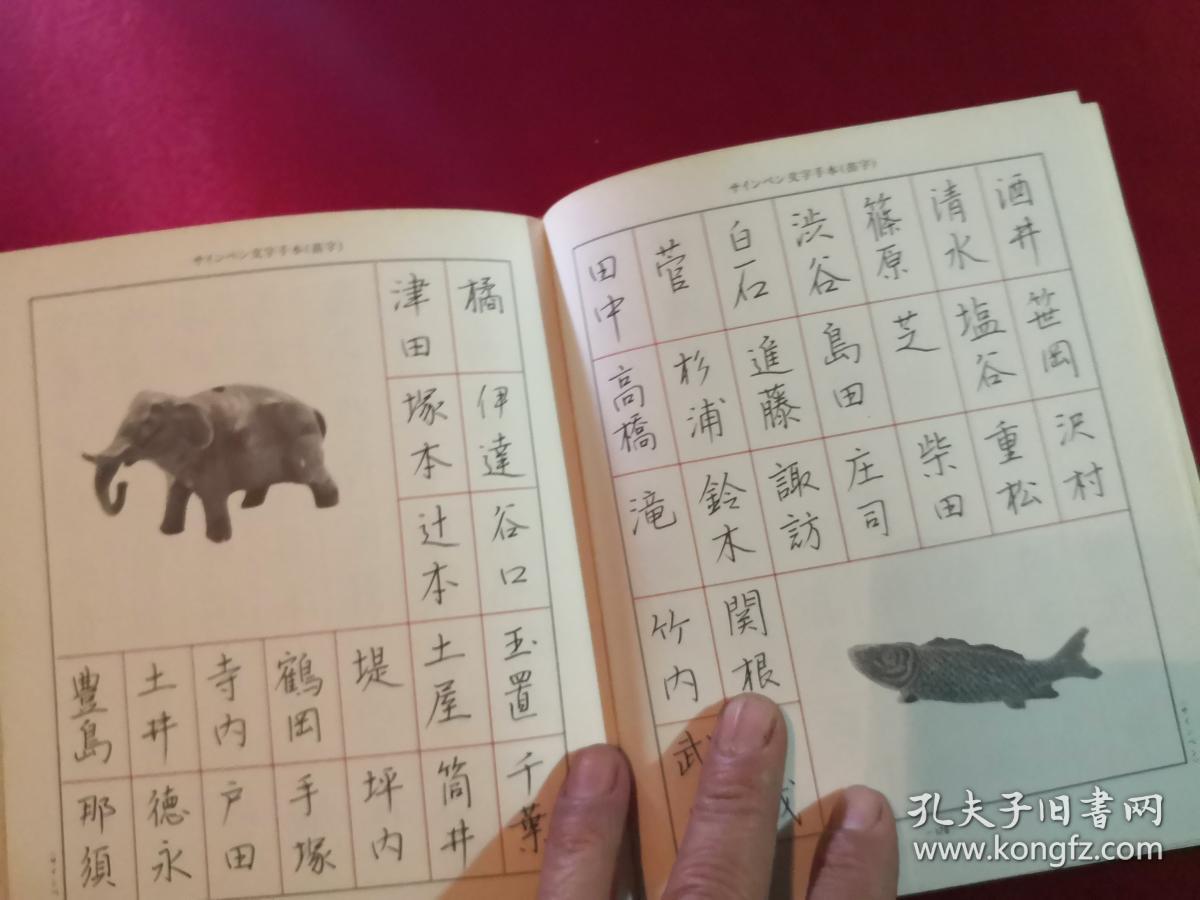 サインペン文字手本(苗字)
酒井
笹岡
沢村
清水
塩谷
重松
篠原
芝
柴田
渋谷
島田
庄司
白石
進藤
諏訪
菅
杉浦
鈴木
関根
田中
高橋
滝
竹内
武
サインペン文字手本(苗字)
橘
伊達
谷口
玉置
千葉
津田
塚本
辻本
土屋
筒井
堤
坪内
鶴岡
手塚
寺内
戸田
土井
徳永
豊島
那須
孔夫子旧書网
www.kongfz.com